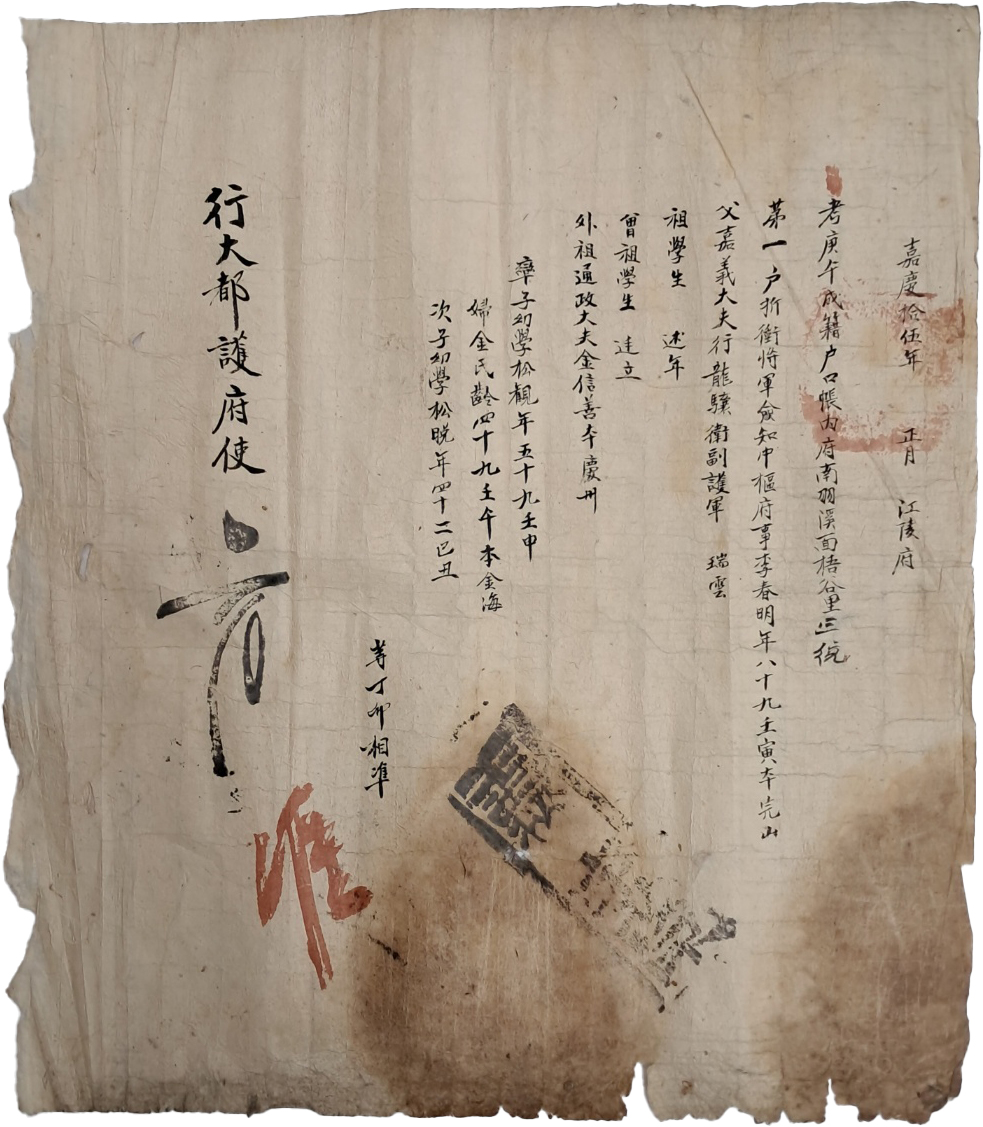 嘉慶拾伍年 正月 江陵府
考庚午成籍户口帳內府南羽溪面梧谷里三統
第一户折衝將軍僉知中樞府事李春明年八十九壬寅本完山
父嘉義大夫行龍驤衛副護軍 瑞雲
祖學生 述年
曾祖學生 逹立
外祖通政大夫金信善本慶州
率子幼學松觀年五十九壬申
婦金氏齡四十九壬午本金海
次子幼學松晩年四十二己丑
等丁卯相準
行大都護府使
準